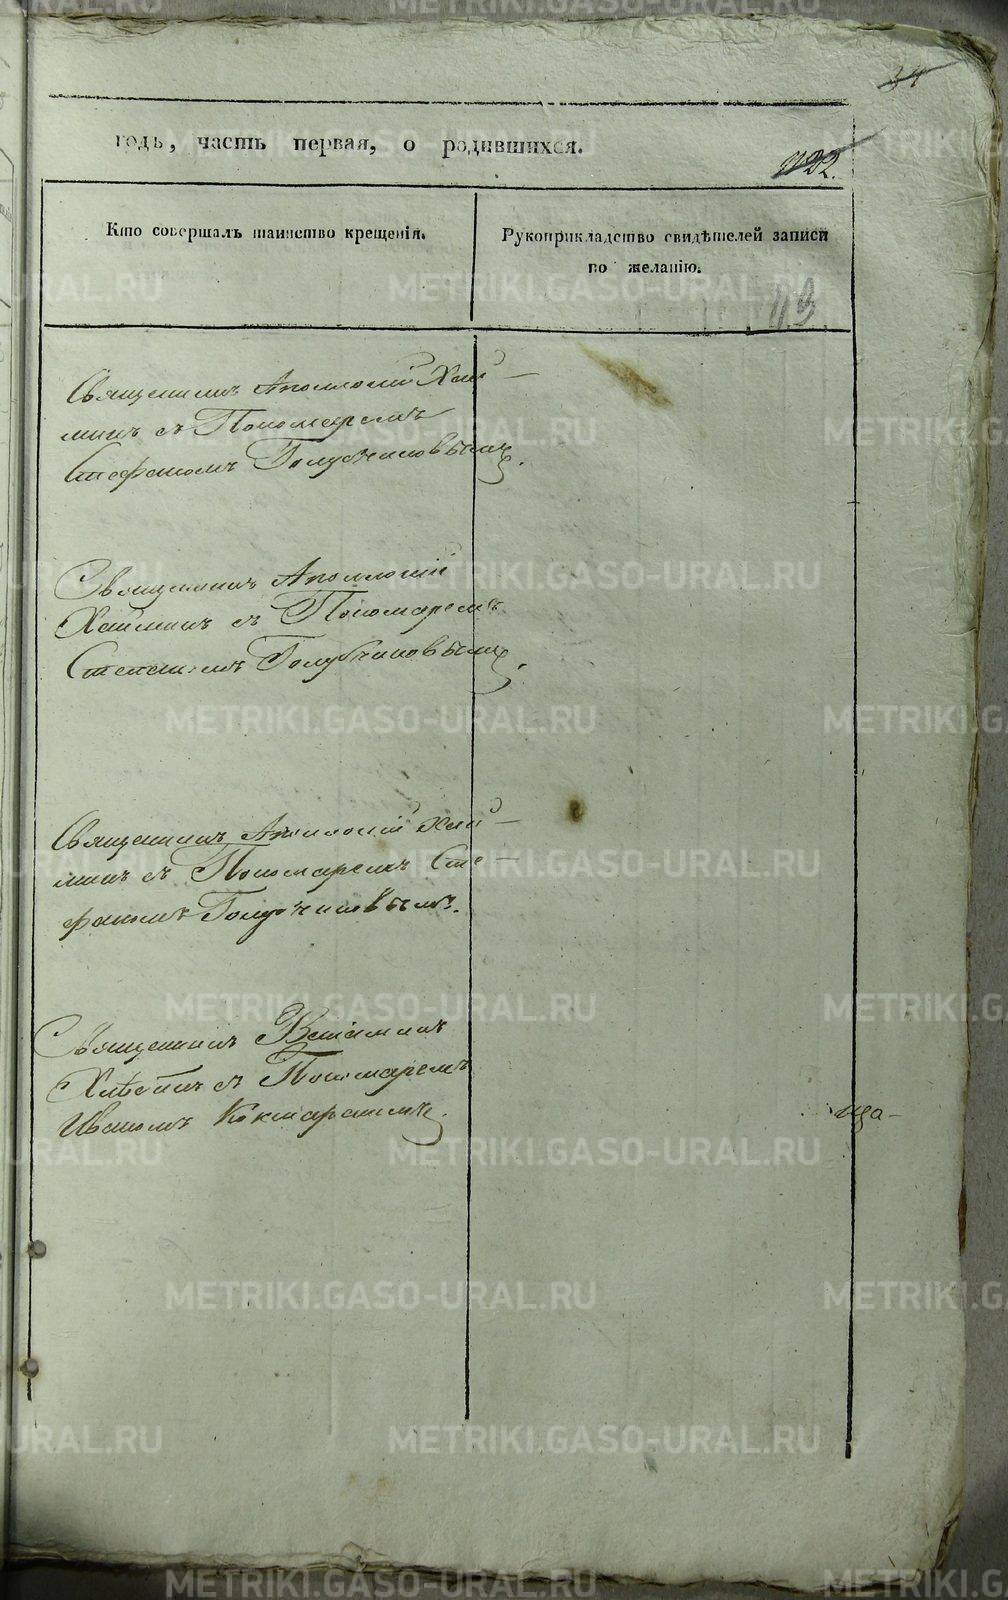 34
годъ, часть первая, о родившихся.
22.
Кто совершалъ таинство крещенія.
Рукоприкладство свидѣтелей записи
по желанію.
113
Священникъ Аполлоній Хлы-
нинъ съ Пономаремъ
Стефаномъ Голубчиковымъ.
Священникъ Аполлоній
съ Пономаремъ
Степаномъ Голубчиковымъ.
Священникъ Аполлоній
съ Пономаремъ Сте-
фаномъ Голубчиковымъ.
Священникъ Веніаминъ
съ Пономаремъ
Иваномъ Кокшарскимъ.
ща-
METRIKI.GASO-URAL.RU